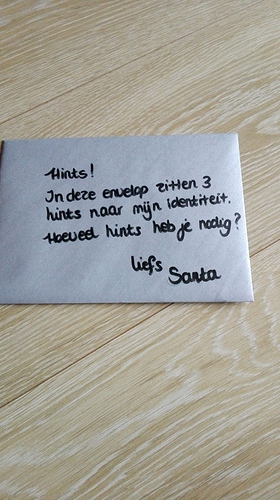 Hints!
In deze envelop zitten 3
hints naar mijn identiteit.
Hoeveel hints heb je nodig?
liefs
Santa